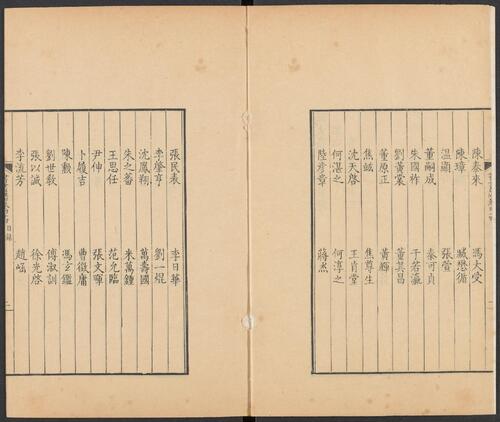 陳泰來 馮大受
陳璋 臧懋循
溫顯 張萱
董嗣成 秦可貞
朱國祚 于若瀛
劉黃裳 董其昌
董原正 黃輝
焦竑 焦尊生
沈天啓 王肯堂
何湛之 何淳之
陸彥章 蔣杰
張民表 李日華
李肇亨 劉一焜
沈鳳翔 萬壽國
朱之蕃 米萬鍾
王思任 范允臨
尹伸 張文暉
卜履吉 曹徵庸
陳勲 馮玄鑑
劉世敎 傅淑訓
張以誠 徐光啓
李流芳 趙崡